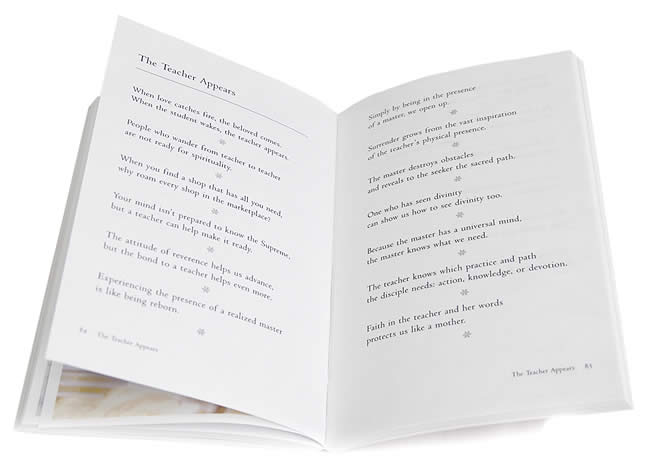 The Teacher Appears
When love catches fire, the beloved comes.
When the student wakes, the teacher appears.
People who wander from teacher to teacher
are not ready for spirituality.
When you find a shop that has all you need,
why roam every shop in the marketplace?
Your mind isn't prepared to know the Supreme,
but a teacher can help make it ready.
The attitude of reverence helps us advance,
but the bond to a teacher helps even more.
Experiencing the presence of a realized master
is like being reborn.
84 The Teacher Appears
Simply by being in the presence
of a master, we open up.
Surrender grows from the vast inspiration
of the teacher's physical presence.
The master destroys obstacles
and reveals to the seeker the sacred path.
One who has seen divinity
can show us how to see divinity too.
Because the master has a universal mind,
the master knows what we need.
The teacher knows which practice and path
the disciple needs: action, knowledge, or devotion.
Faith in the teacher and her words
protects us like a mother.
The Teacher Appears 85